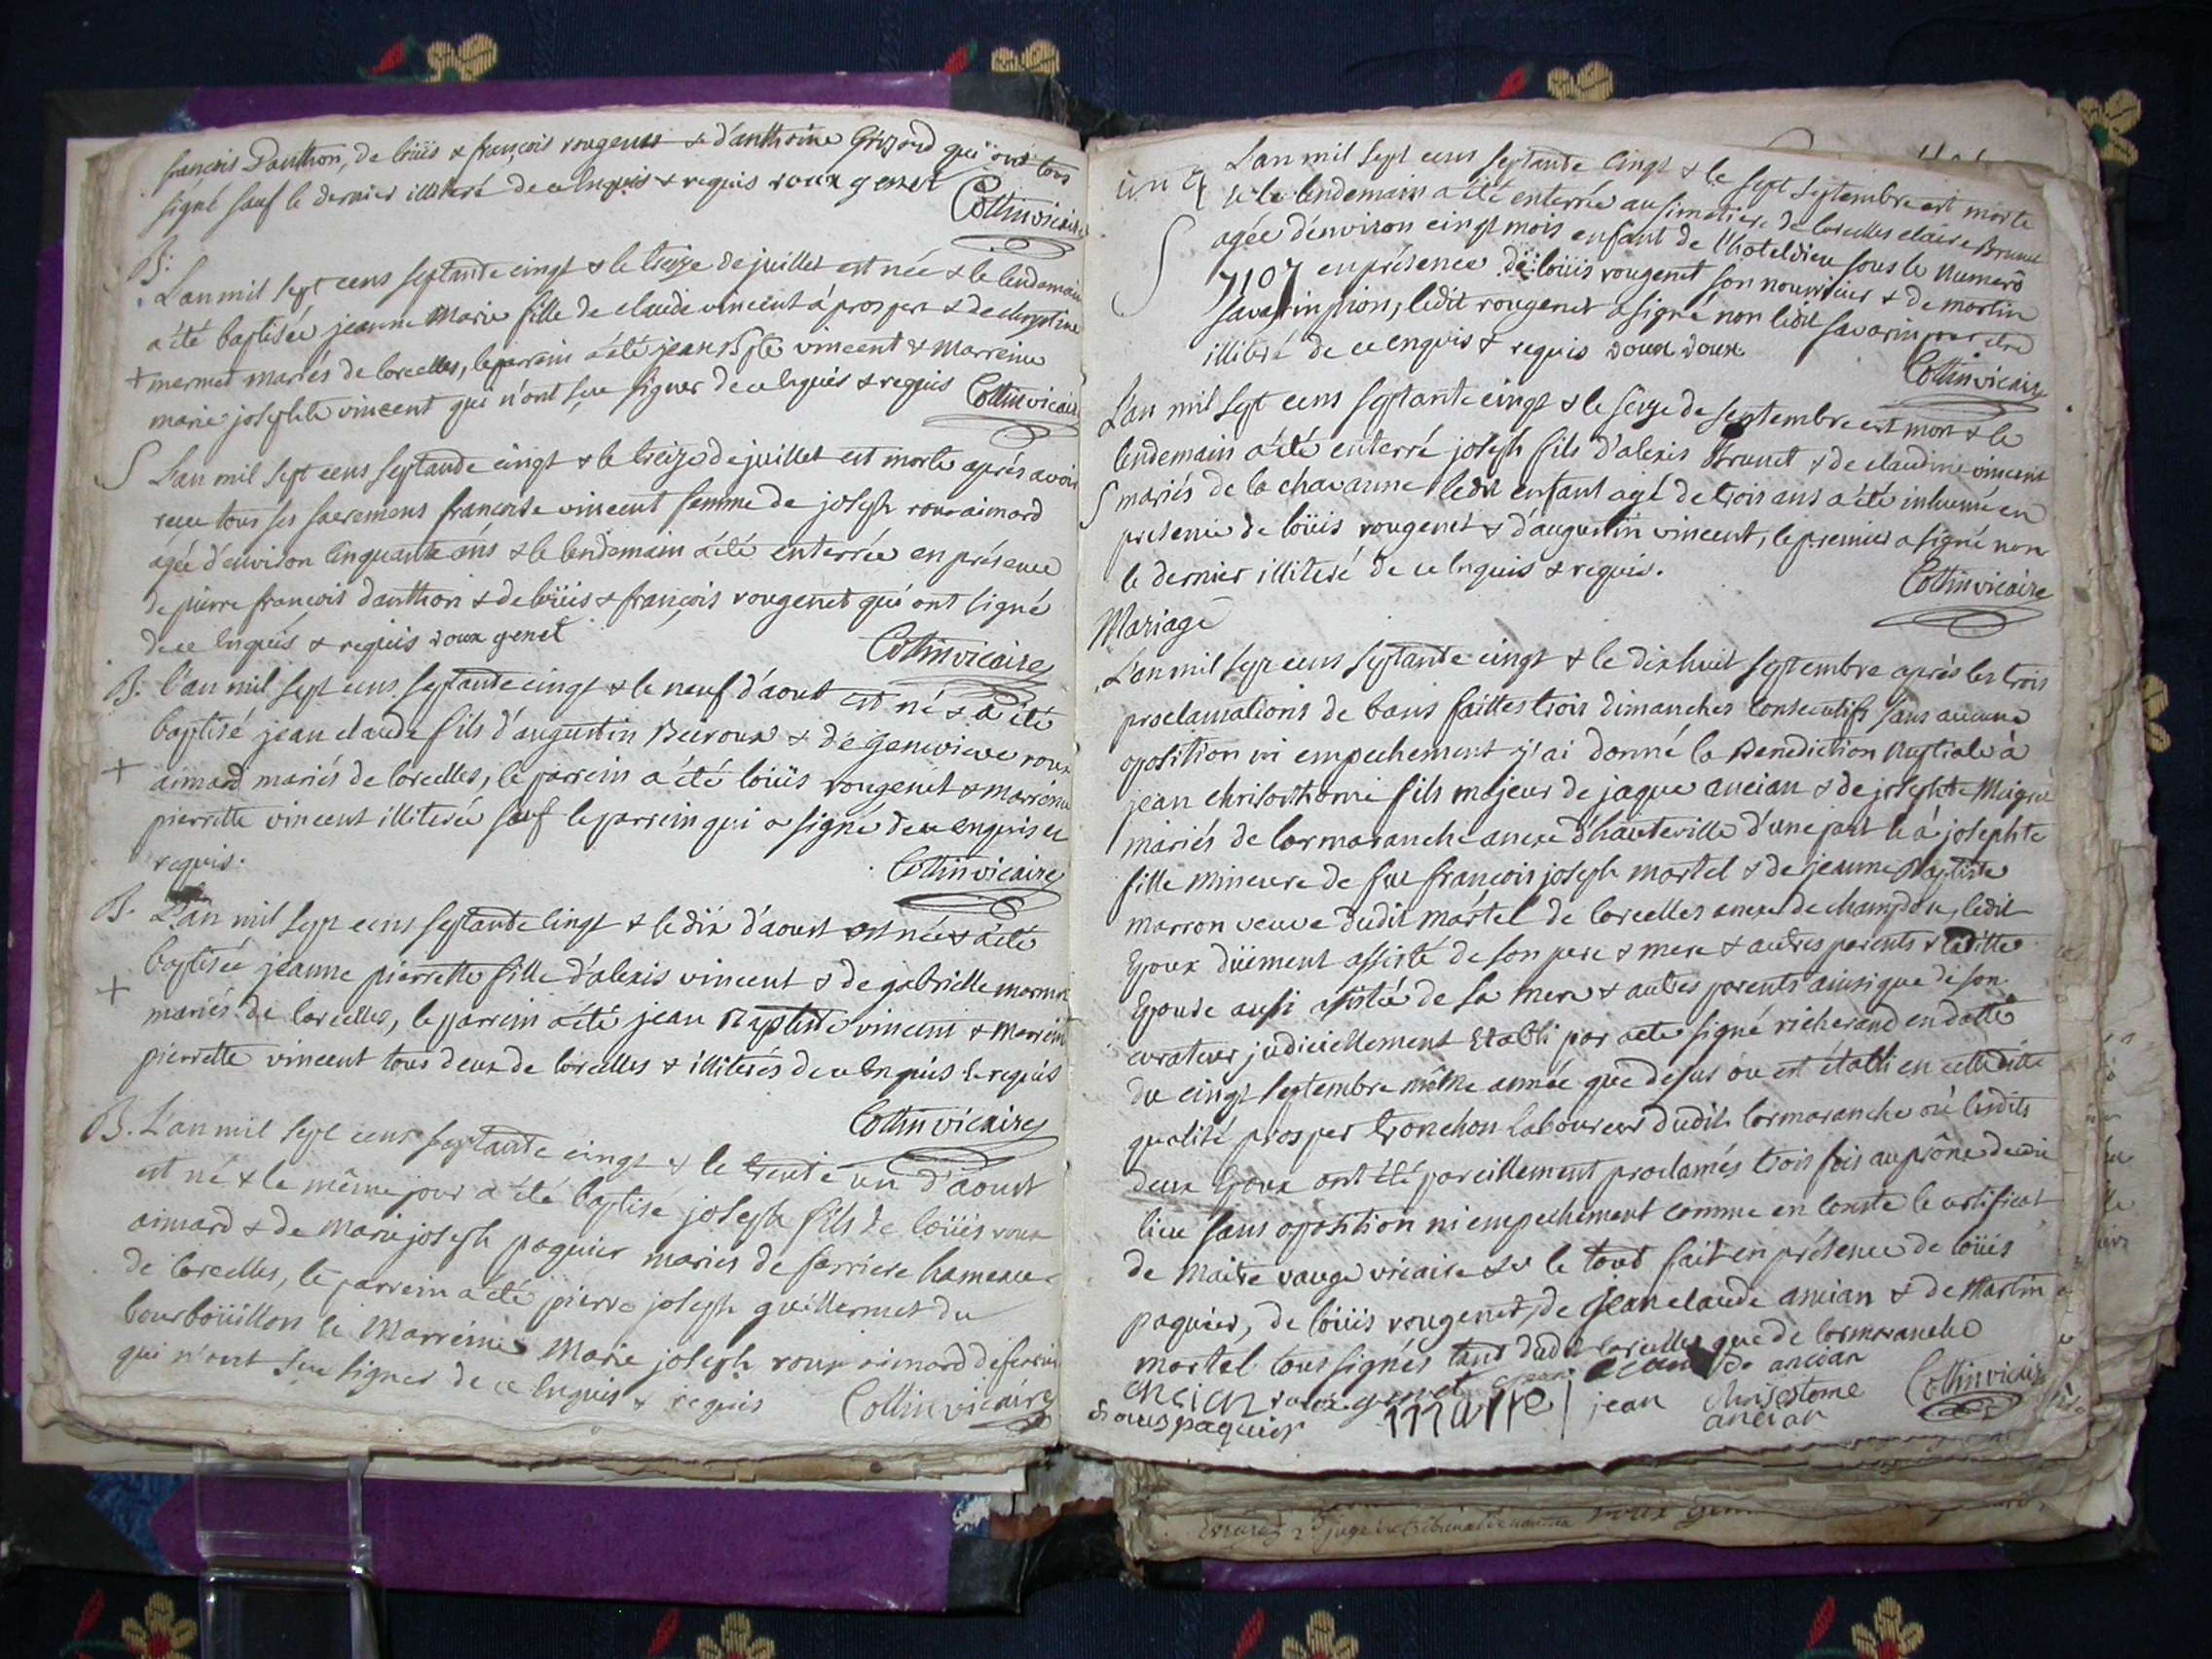 françois Dauthon, de loüis & françois rougenet & d'anthoine Grizard qui ont tous
signé sauf le dernier illiteré de ce enquis & requis roux genet
Collin vicaire
B:
L'an mil sept cens septante cinqt & le treize de juillet est née & le lendemain
a été baptisée jeanne Marie fille de claude vincent à prosper & de
+ mermet mariés de lorcelles, le parrein a été jean Bpte vincent & Marreine
marie josephte vincent qui n'ont sçu signer de ce enquis & requis Collin vicaire
S L'an mil sept cens septante cinqt & le treize de juillet est morte après avoir
reçu tous ses sacremens françoise vincent femme de joseph roux aimard
agée d'environ cinquante ans & le lendemain a été enterrée en présence
de pierre françois dauthon & de loüis & françois rougenet qui ont signé
de ce enquis & requis roux genet
Collin vicaire
B: L'an mil sept cens septante cinqt & le neuf d'aout est né & a été
baptisé jean claude fils d'augustin & de genevieve roux
+ aimard mariés de lorcelles, le parrein a été loüis rougenet & marreine
pierrette vincent illiterée sauf le parrein qui a signé de ce enquis et
requis.
Collin vicaire
B. L'an mil sept cens septante cinqt & le dix d'aoust est née & a été
baptisée jeanne pierrette fille d'alexis vincent & de gabrielle mermet
+ mariés de lorcelles, le parrein a été jean Baptiste vincent & Marreine
pierrette vincent tous deux de lorcelles & illiterés de ce enquis & requis
Collin vicaire
B. L'an mil sept cens septante cinqt & le trente un d'aoust
est né & le même jour a été baptisé joseph fils de loüis roux
aimard & de Marie joseph paquier mariés de ferriere hameau
de lorcelles, le parrein a été pierre joseph guillermet du
bourboüillon & Marreine Marie joseph roux aimard de
qui n'ont sçu signer de ce enquis & requis
Collin vicaire
L'an mil sept cens septante cinqt & le sept septembre est morte
& le lendemain a été enterrée au simetiere de lorcelles claire Brunet
agée d'environ cinqt mois enfant de l'hoteldieu sous le Numero
S 7107 en présence de loüis rougenet son nourricier & de martin
savarin pion, ledit rougenet a signé non ledit savarin par etre
illiteré de ce enquis & requis roux
Collin vicaire
L'an mil sept cens septante cinqt & le seize de septembre est mort & le
lendemain a été enterré joseph fils d'alexis Brunet & de claudine vincent
S mariés de la chavanne ledit enfant agé de trois ans a été inhumé en
presence de loüis rougenet & d'augustin vincent, le premier a signé non
le dernier illiteré de ce enquis & requis.
Collin vicaire
Mariage
L'an mil sept cens septante cinqt & le dix huit septembre après les trois
proclamations de bans faittes trois dimanches consecutifs sans aucune
oposition ni empechement j'ai donné la Benediction Nuptiale à
jean chrisosthome fils majeur de jaque ancian & de josephte
mariés de lormaranche anexe d'hauteville d'une part & à josephte
fille mineure de feu françois joseph martel & de jeanne Baptiste
marron veuve dudit martel de lorcelles anexe de champdor, ledit
Epoux düement assisté de son pere & mere & autres parents & laditte
Epouse aussi assistée de sa mere & autres parents ainsi que de son
curateur judiciellement Etabli par acte signé richerand en datte
du cinqt septembre même année que desus où est établi en cette ditte
qualité prosper tronchon laboureur dudit lormaranche où lesdits
deux Epoux ont été pareillement proclamés trois fois au prône dudit
lieu sans oposition ni empechement comme en conste le certificat
de Maitre vauge vicaire le tout fait en présence de loüis
paquier, de loüis rougenet, de jean claude ancian & de Martin
martel tous signés tant dudit lorcelles que de lormaranche
ancian roux genet de ancian
paquier jean chrisostome ancian Collin vicaire